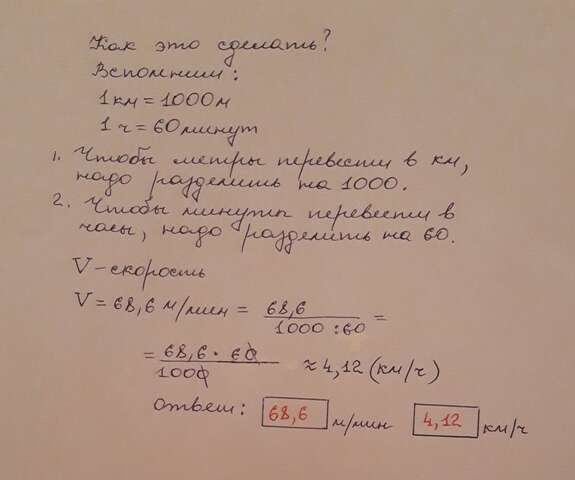 Как это сделать?
Вспомним:
1 км = 1000 м
1 ч = 60 минут
1. Чтобы метры перевести в км,
надо разделить на 1000.
2. Чтобы минуты перевести в
часы, надо разделить на 60.
V - скорость
V = 68,6 м/мин = 68,6 / 1000 : 60 =
= 68,6 · 60 / 1000 ≈ 4,12 (км/ч)
Ответ: 68,6 м/мин 4,12 км/ч